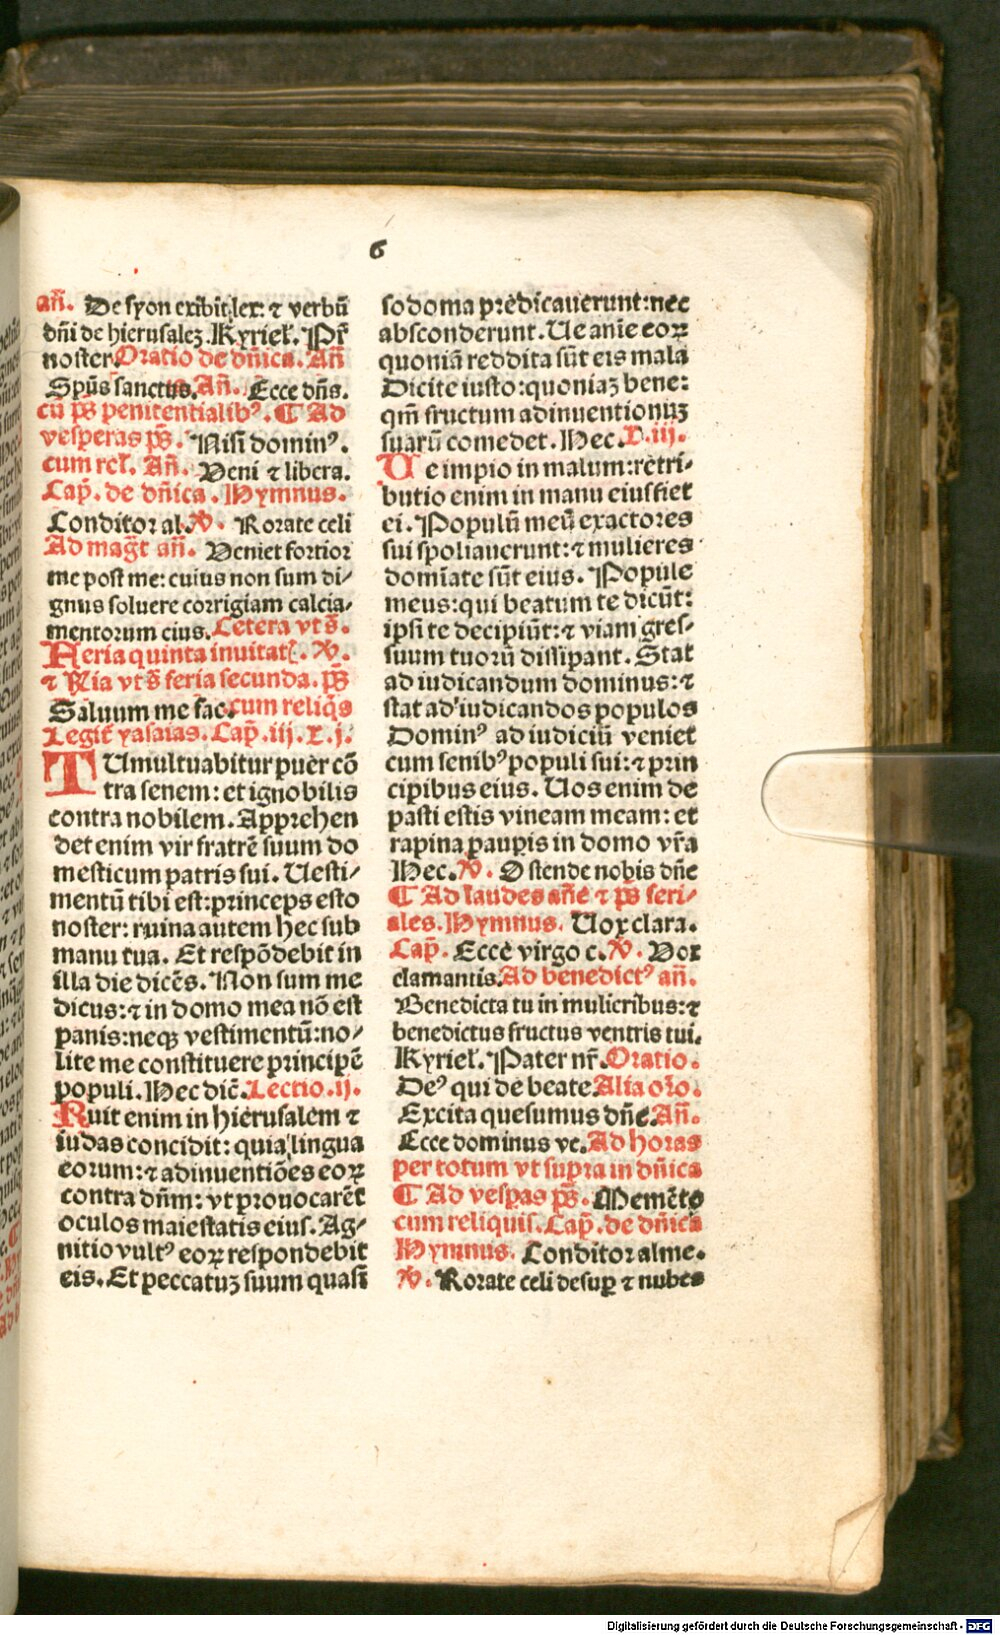 6
añ. De syon exibit lex: ⁊ verbū
dñi de hierusalez. Kyriel̄. Pr̄
noster. Oratio de dñica. Añ
Spūs sanctus. Añ. Ecce dñs.
cū p̄s penitentialibꝰ. ¶ Ad
vesperas p̄s. Nisi dominꝰ.
cum rel̄. Añ. Veni ⁊ libera.
Cap̄. de dñica. Hymnus.
Conditor al. ℣. Rorate celi
Ad mag̃t añ. Veniet fortior
me post me: cuius non sum di/
gnus soluere corrigiam calcia/
mentorum eius. Cetera vt s̄.
Feria quinta inuitat̄. ℣.
⁊ Ria vt s̄ feria secunda. p̄s
Saluum me fac. cum reliq̄s
Legit̄ ysaias. Cap̄. iij. L. j.
TUmultuabitur puer cō
tra senem: et ignobilis
contra nobilem. Apprehen
det enim vir fratrē suum do
mesticum patris sui. Uesti/
mentū tibi est: princeps esto
noster: ruina autem hec sub
manu tua. Et respōdebit in
illa die dicēs. Non sum me
dicus: ⁊ in domo mea nō est
panis: neqꝫ vestimentū: no/
lite me constituere principē
populi. Hec dic̄. Lectio. ij.
Ruit enim in hierusalem ⁊
iudas concidit: quia lingua
eorum: ⁊ adinuentiōes eoꝝ
contra dñm: vt prouocarēt
oculos maiestatis eius. Ag/
nitio vultꝰ eoꝝ respondebit
eis. Et peccatuꝫ suum quasi
sodoma predicauerunt: nec
absconderunt. Ue anīe eoꝝ
quoniā reddita sūt eis mala
Dicite iusto: quoniaꝫ bene:
qm̄ fructum adinuentionuꝫ
suarū comedet. Hec. L. iij.
Ue impio in malum: retri/
butio enim in manu eius fiet
ei. Populū meū exactores
sui spoliauerunt: ⁊ mulieres
domīate sūt eius. Popule
meus: qui beatum te dicūt:
ipsi te decipiūt: ⁊ viam gres/
suum tuorū dissipant. Stat
ad iudicandum dominus: ⁊
stat ad iudicandos populos
Dominꝰ ad iudiciū veniet
cum senibꝰ populi sui: ⁊ prin
cipibus eius. Uos enim de
pasti estis vineam meam: et
rapina pauꝑis in domo vr̄a
Hec. ℣. Ostende nobis dñe
¶ Ad laudes añe ⁊ p̄s feri/
ales. Hymnus. Uox clara.
Cap̄. Ecce virgo c. ℣. Vox
clamantis. Ad benedictꝰ añ.
Benedicta tu in mulieribus: ⁊
benedictus fructus ventris tui.
Kyriel̄. Pater nr̄. Oratio.
Deꝰ qui de beate Alia oro.
Excita quesumus dñe. Añ.
Ecce dominus ve. Ad horas
per totum vt supra in dñica
¶ Ad vesꝑas p̄s. Memēto
cum reliquis. Cap̄. de dñica
Hymnus. Conditor alme.
℣. Rorate celi desuꝑ ⁊ nubes
Digitalisierung gefördert durch die Deutsche Forschungsgemeinschaft - DFG